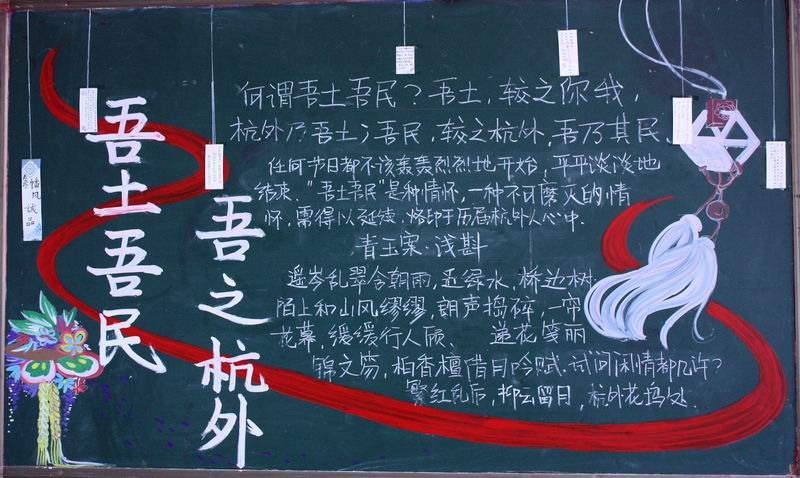 吾土吾民
吾之杭外
何谓吾土吾民？吾土，较之你我，
杭外乃吾土；吾民，较之杭外，吾乃其民
任何节日都不该轰轰烈烈地开始，平平淡淡地
结束。“吾土吾民”是种情怀，一种不可磨灭的情
怀，需得以延续，烙印于历届杭外人心中.
青玉案·浅斟
遥岑乱翠含朝雨，近绿水，桥边树
陌上和山风缪缪，朗声捣碎，一帘
花幕，缓缓行人顾、 递花笺丽
锦文笏，柏香檀借月吟赋.试问闲情都几许？
繁红乱后，柳云留月，杭外花坞处.
诚品